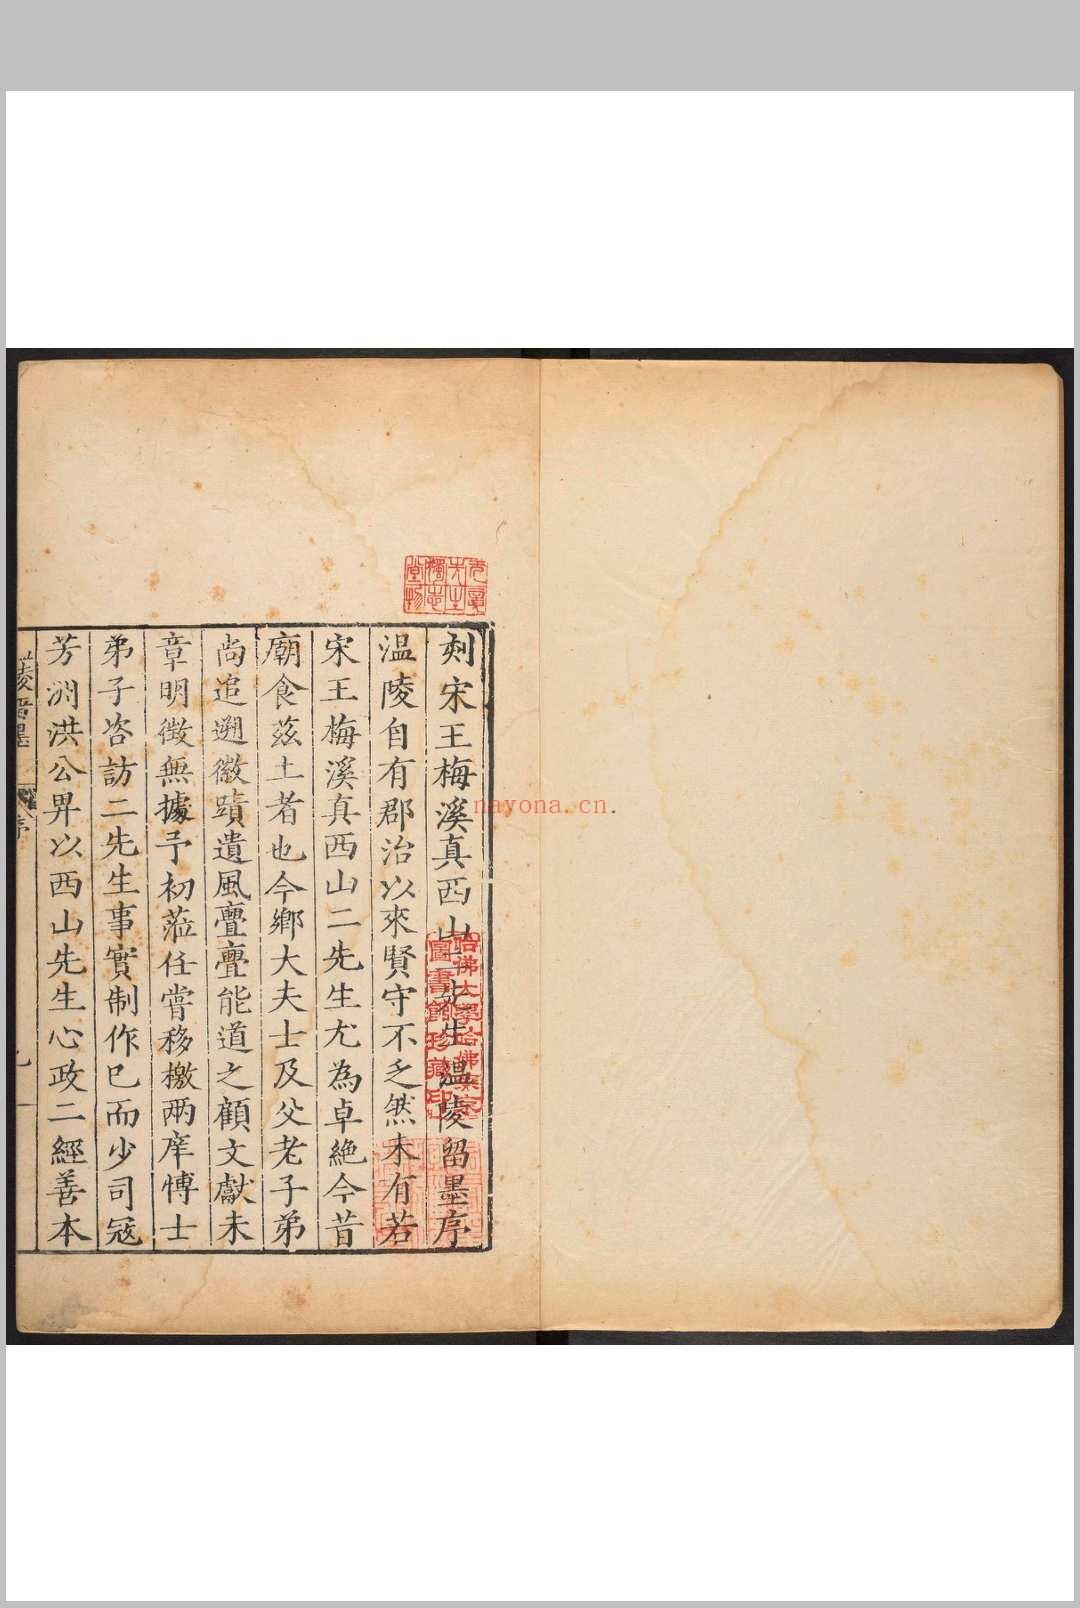 刻宋王梅溪真西山二先生溫陵留墨序
溫陵自有郡治以來賢守不乏然未有若
宋王梅溪真西山二先生尤為卓絶今昔
廟食茲土者也今鄉大夫士及父老子弟
尚追遡徽蹟遺風亹亹能道之顧文獻未
章明徵無據予初蒞任嘗移檄兩庠博士
弟子咨訪二先生事實制作已而少司寇
芳洲洪公畀以西山先生心政二經善本
陵留墨
序
一
哈佛大學哈佛燕京
圖書館珍藏印
nayona.cn.